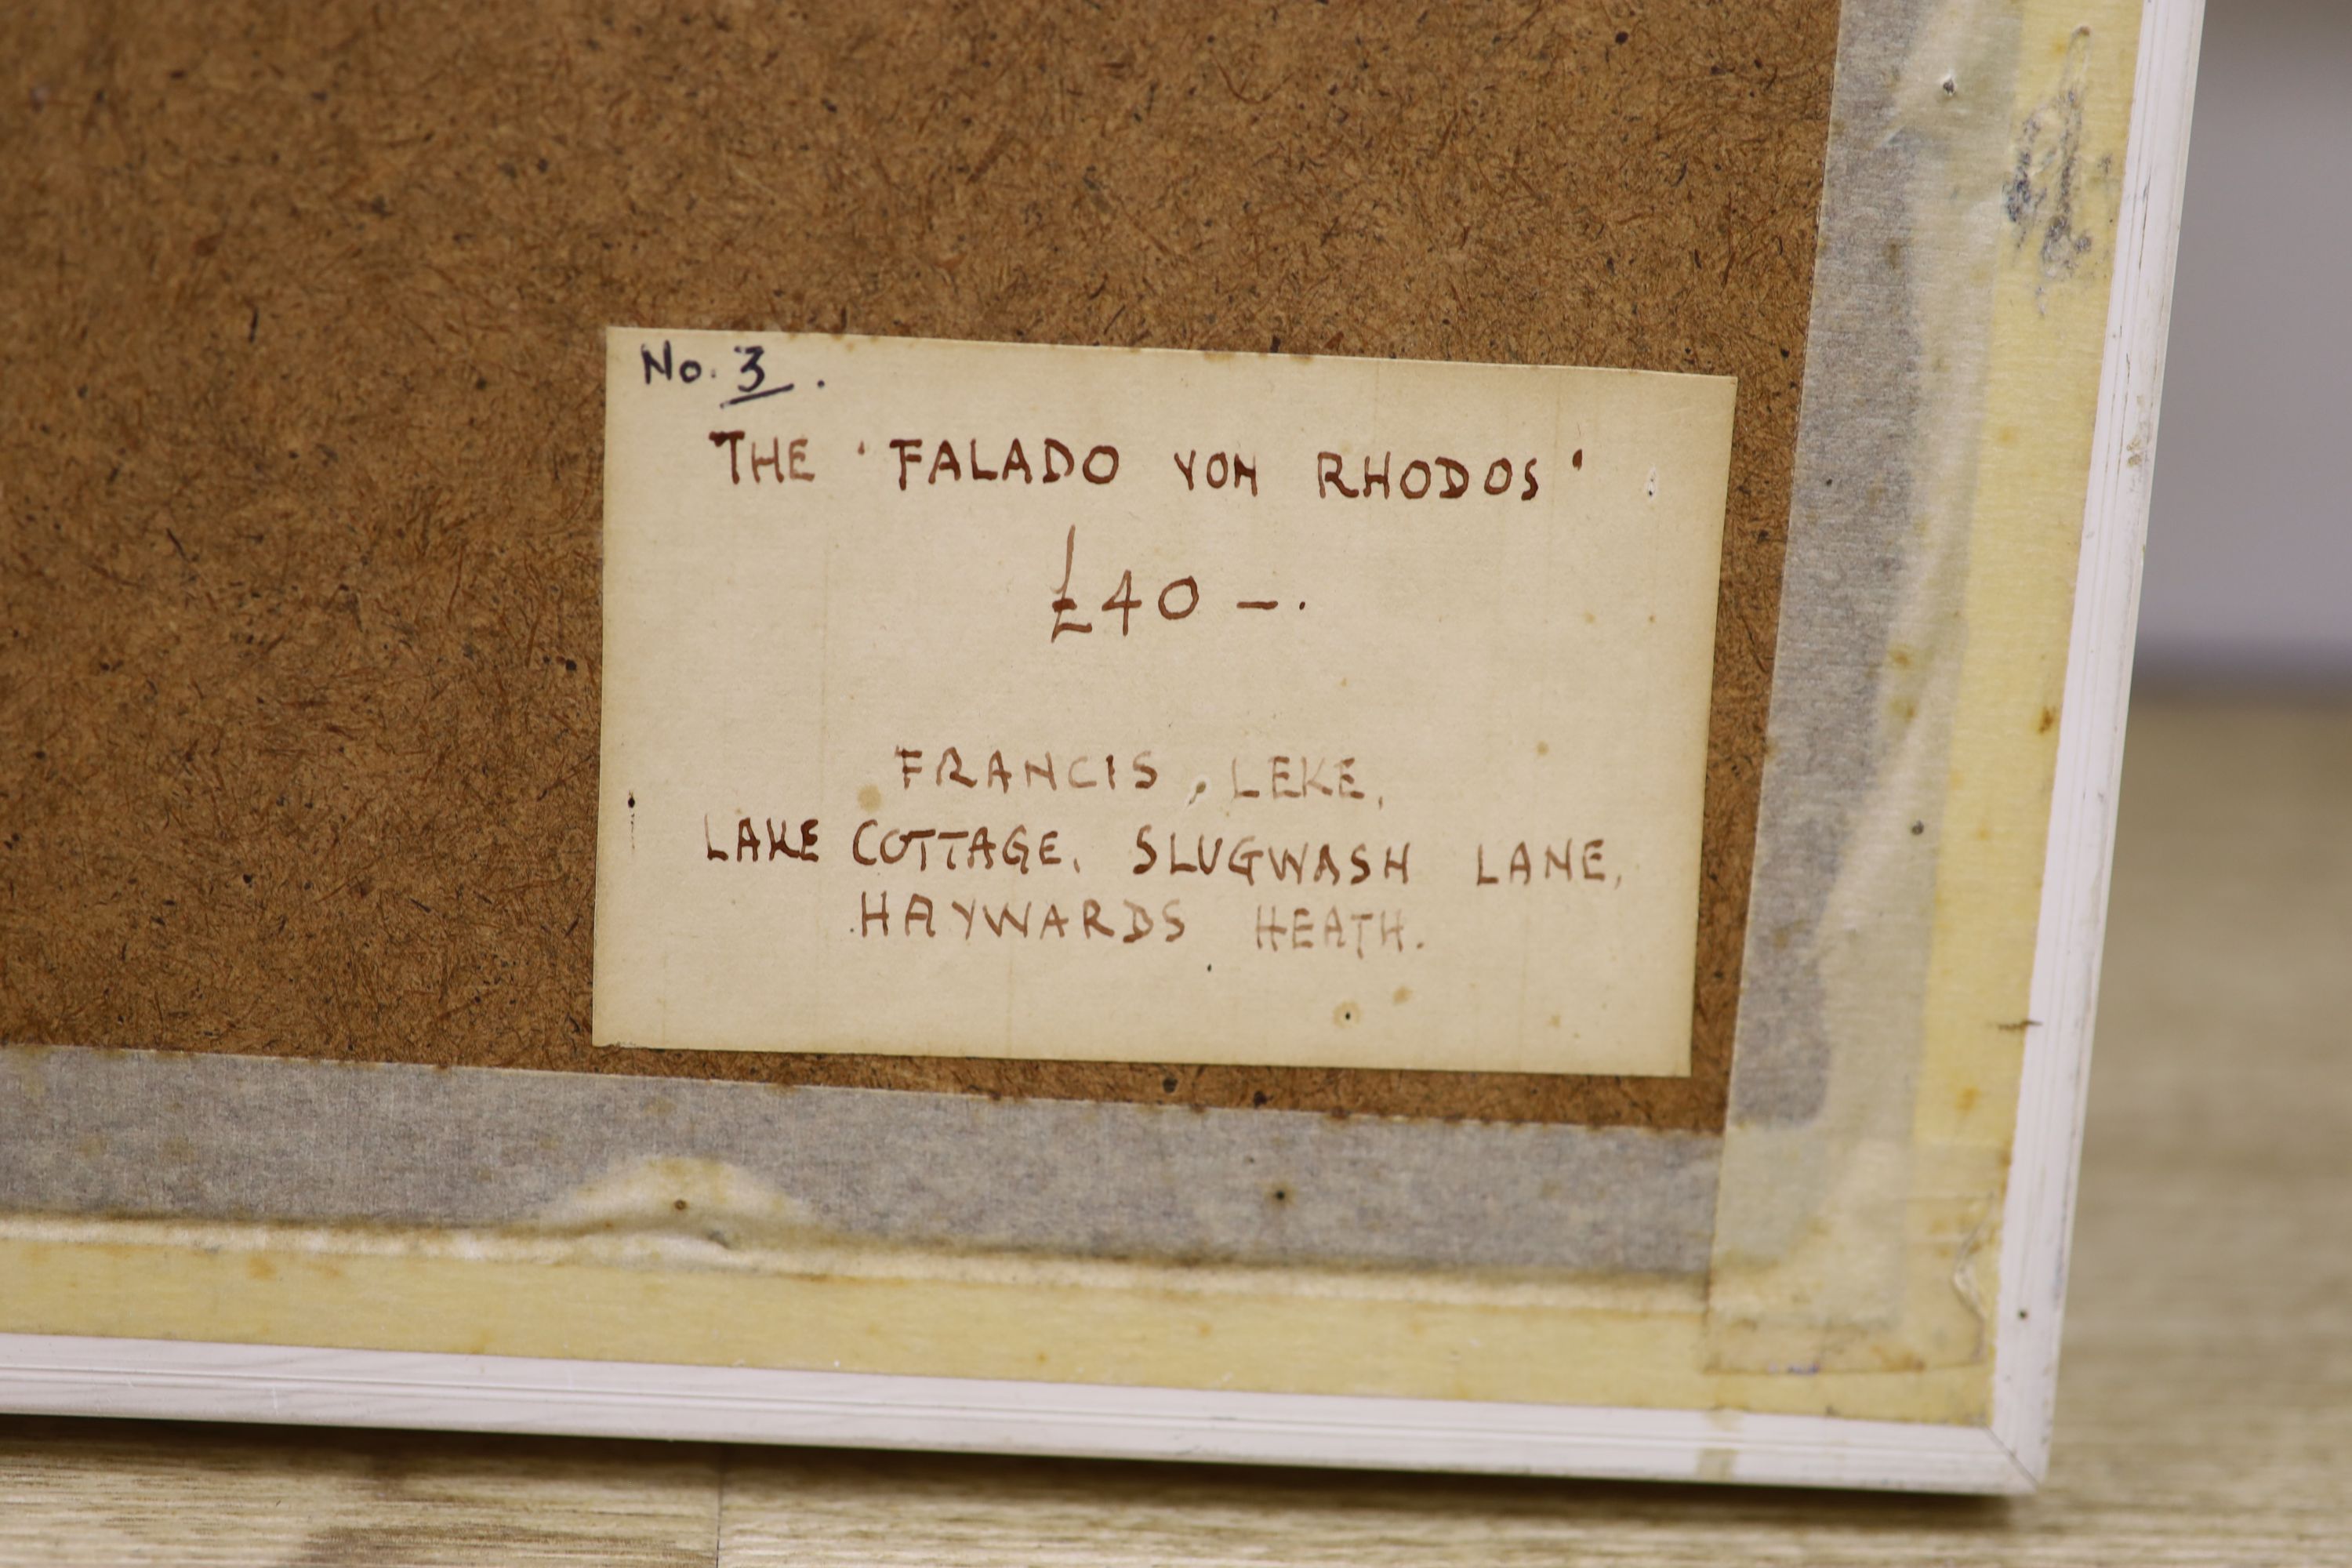 No. 3.
THE 'FALADO VON RHODOS'
£40 -.
FRANCIS, LEKE,
LAKE COTTAGE. SLUGWASH LANE,
HAYWARDS HEATH.